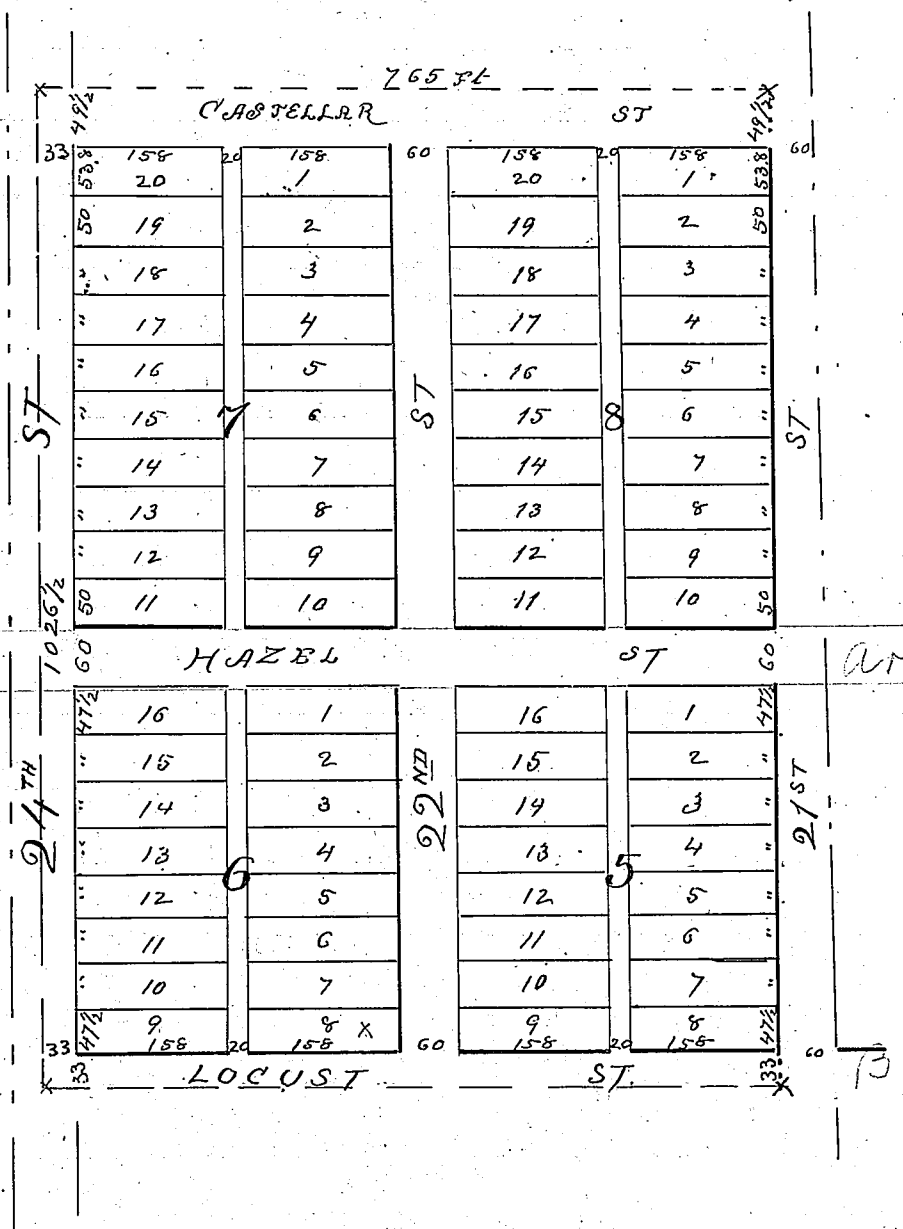 765 Ft
49½ CASTELLAR ST 49½
33 158 20 158 60 158 20 158 60
53.8 20 1 20 1 53.8
50 19 2 19 2 50
" 18 3 18 3 "
" 17 4 17 4 "
" 16 5 16 5 "
ST " 15 7 6 ST 15 8 6 " ST
" 14 7 14 7 "
" 13 8 13 8 "
" 12 9 12 9 "
50 11 10 11 10 50
1026½ 60 HAZEL ST 60
47½ 16 1 16 1 47½
" 15 2 15 2 "
24TH " 14 3 22ND 14 3 " 21ST
" 13 4 13 4 "
6 5
" 12 5 12 5 "
" 11 6 11 6 "
" 10 7 10 7 "
47½ 9 8 X 9 8 47½
33 158 20 158 60 158 20 158 60
33 LOCUST ST. 33